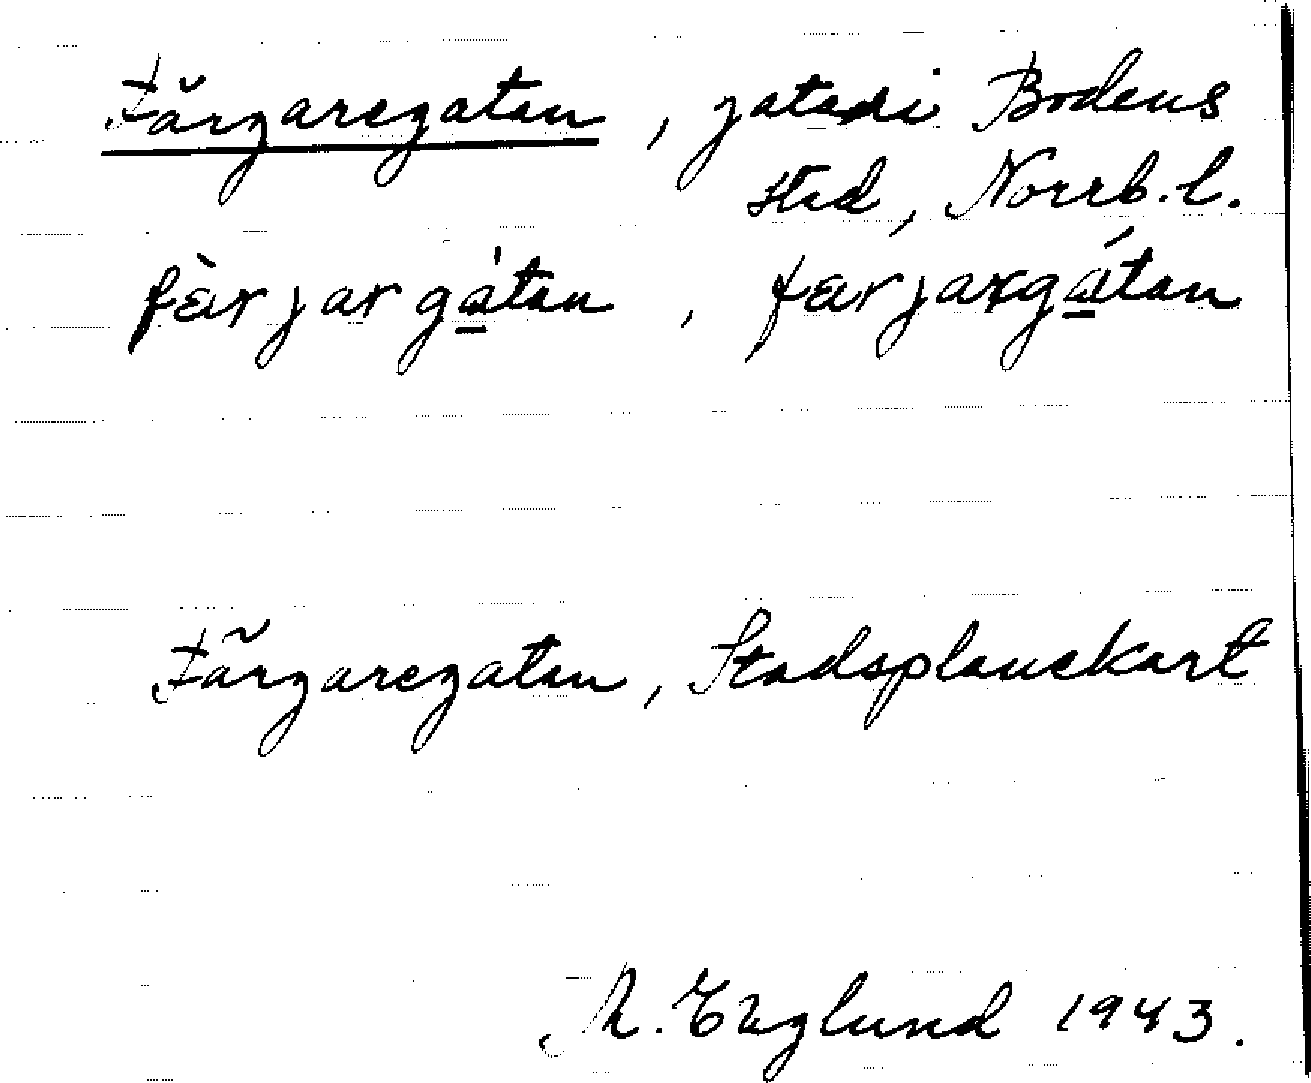 Färgaregatan, gata i Bodens
stad, Norrb. l.
fæ̀rjargátan, færjargátan
Färgaregatan, Stadsplanekart
A. Englund 1943.